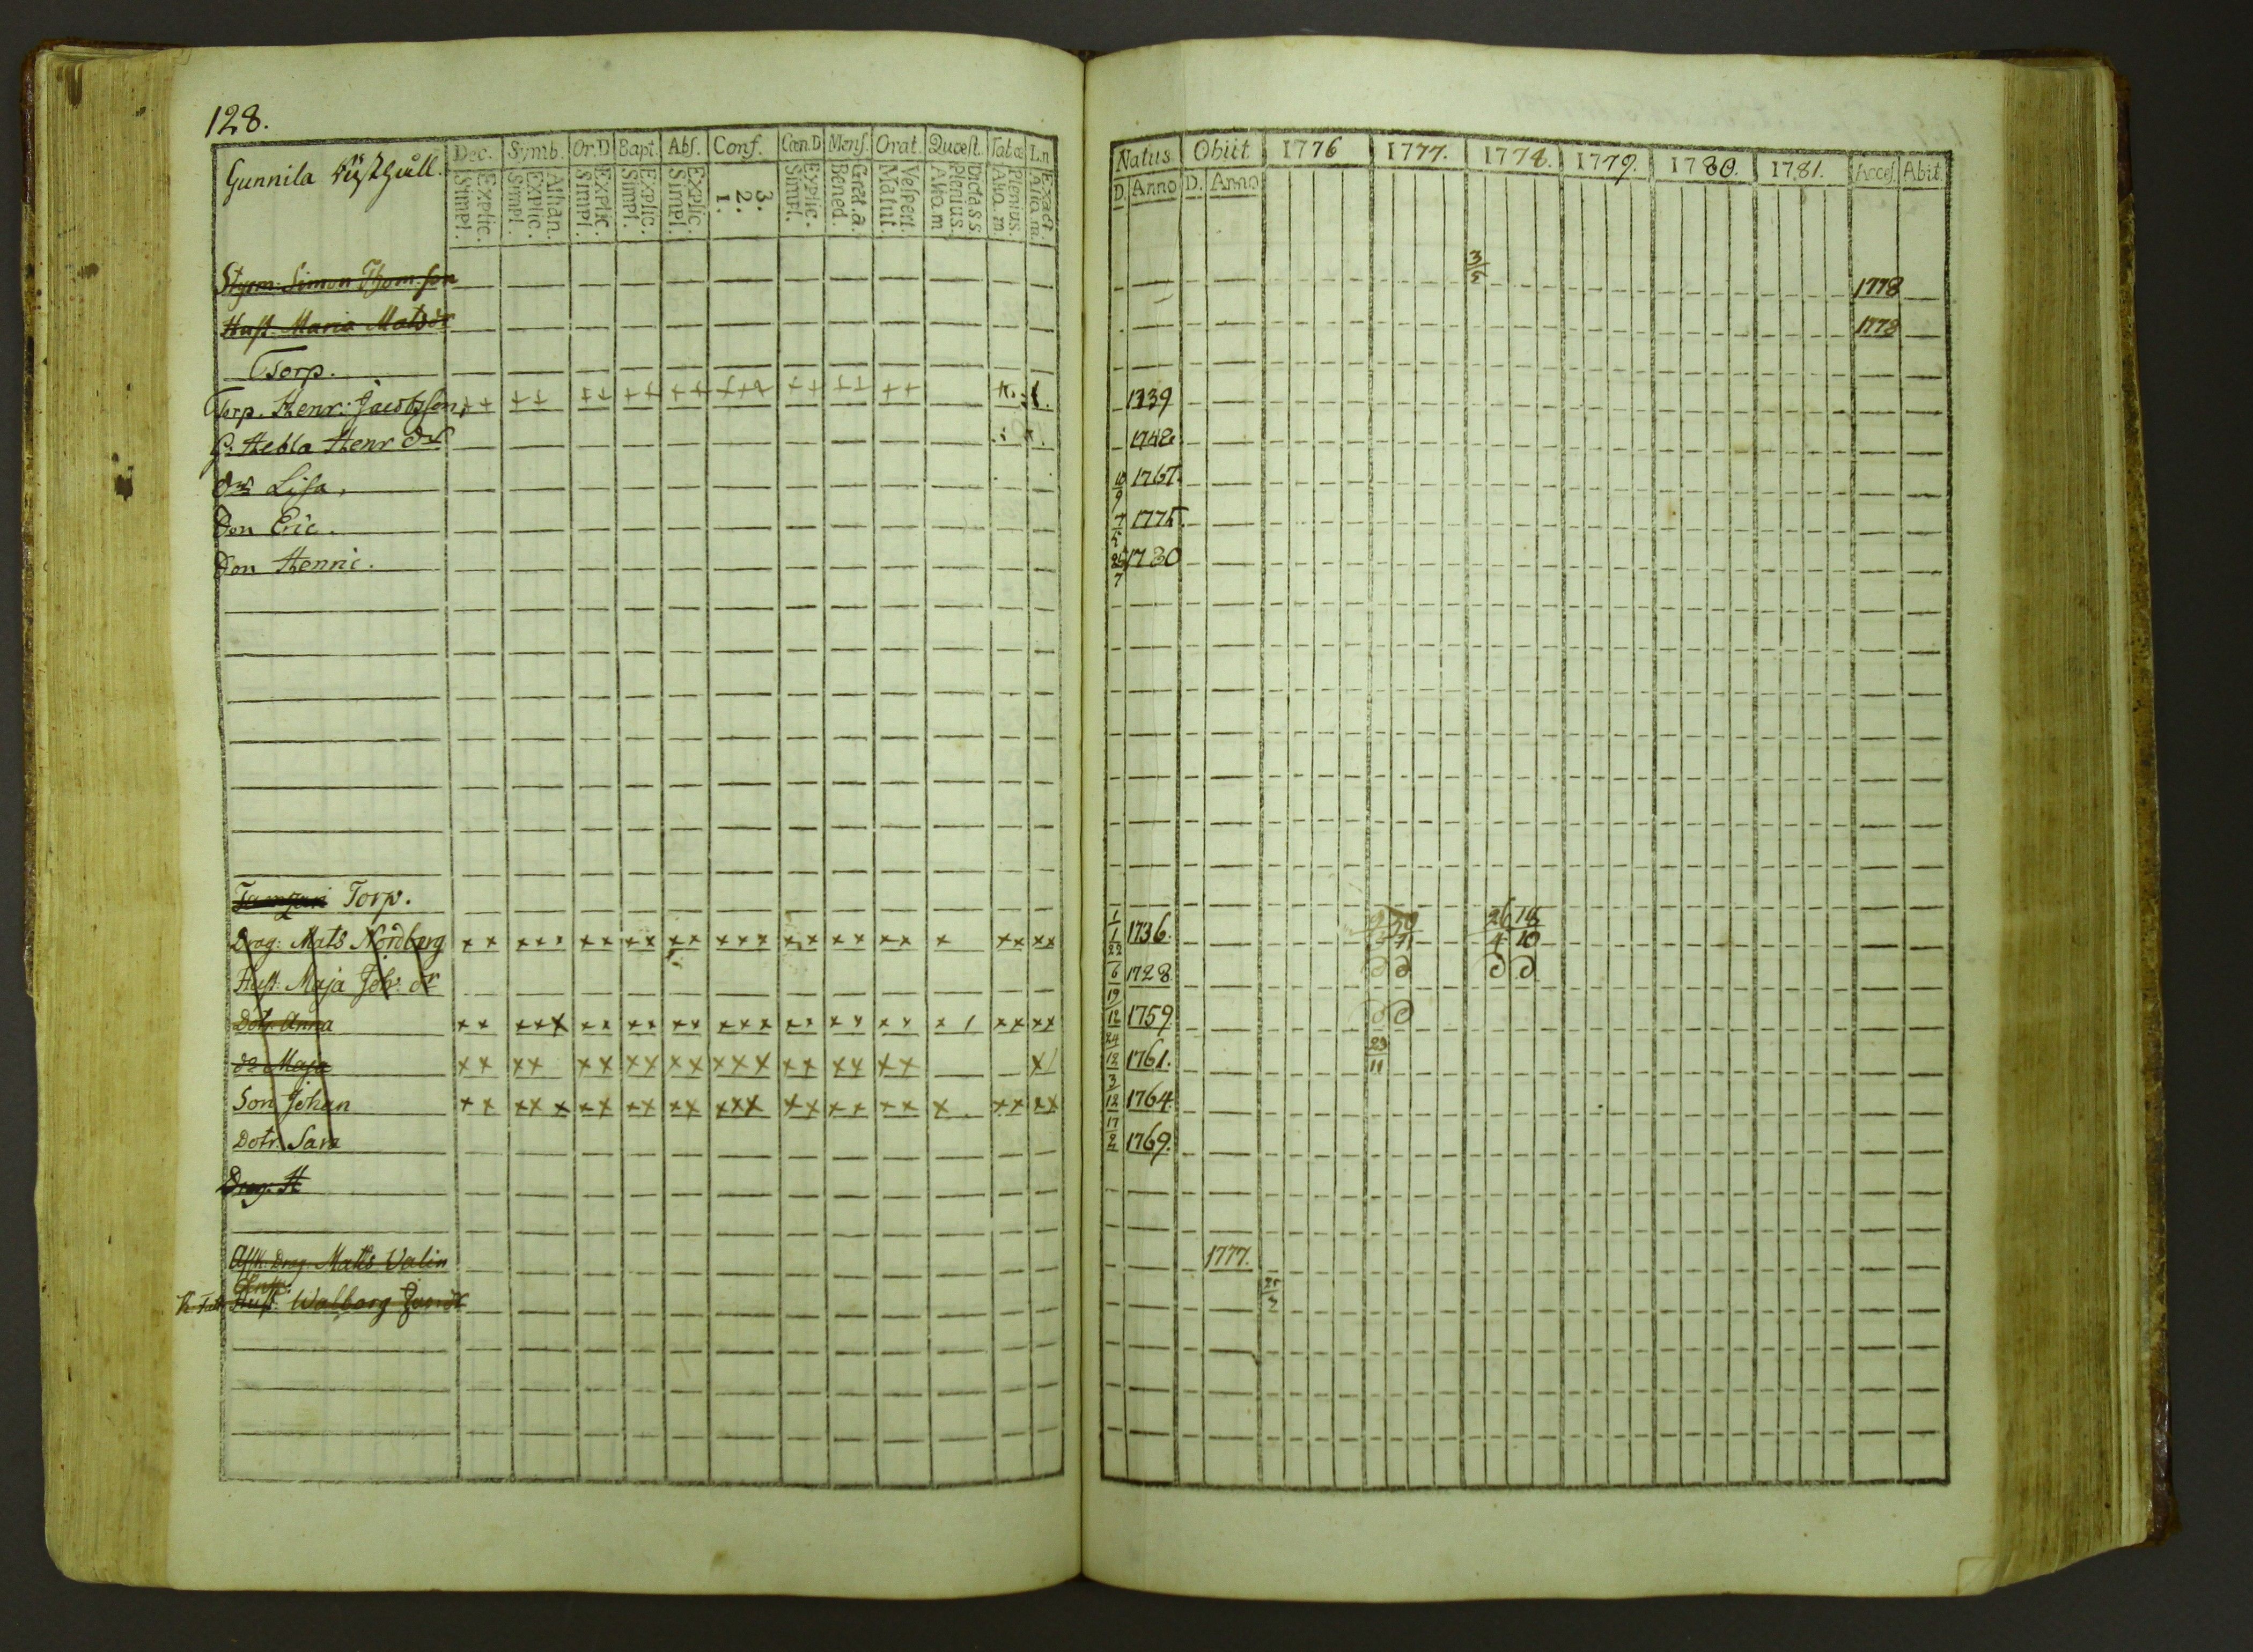 128.
Gunnila
Dec. Symb. Or.D Bapt. Abs. Conf. Cœn.D Mens. Orat. Quæst. Tabœ L.n
Explic. Simpl. Athan. Explic. Simpl. Explic. Simpl. Explic. Simpl. Explic. Simpl. 3. 2. 1. Explic. Simpl. Grat.a. Bened. Vespert. Matut. Dicta s s Plenius. Aliq.m Plenius. Aliq.m Exact. Aliq.m
Natus Obiit 1776 1777. 1778. 1779. 1780. 1781. Acces. Abit.
D. Anno D. Anno
Styrm. Simon Thomson 3/5 1778
Hust. Maria Matsdr 1778
Torp.
Torp. Henr: Jacobsson 1739
H. Hebla Henr dr 1742
dr Lisa. 10/9 1767.
Son Eric. 7/5 1775.
Son Henric. 26/7 1780
Torp.
Drag: Mats Nordberg 1/1 1736. 26/4 18/10
Hust: Maja Joh: dr 22/6 1728
Dotr. Anna 19/12 1759
dr Maja 24/12 1761. 23/11
Son Johan 3/12 1764
Dotr. Sara 17/2 1769.
Drag: H
Afsk. Drag: Matts Valin 1777.
Enk:
Hust. Walborg 25/3